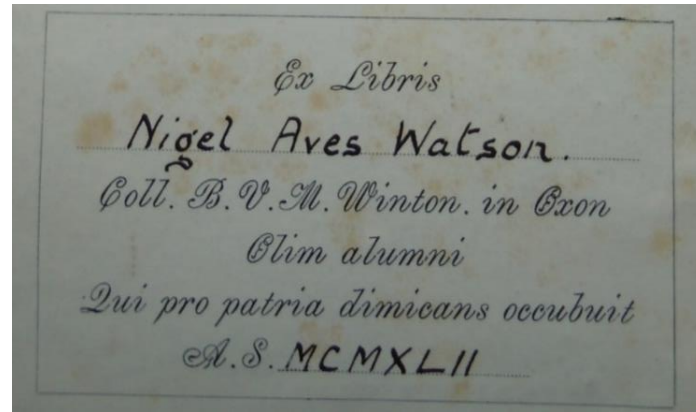 Ex Libris
Nigel Aves Watson.
Coll. B. V. M. Winton. in Oxon
Olim alumni
Qui pro patria dimicans occubuit
A. S. MCMXLII